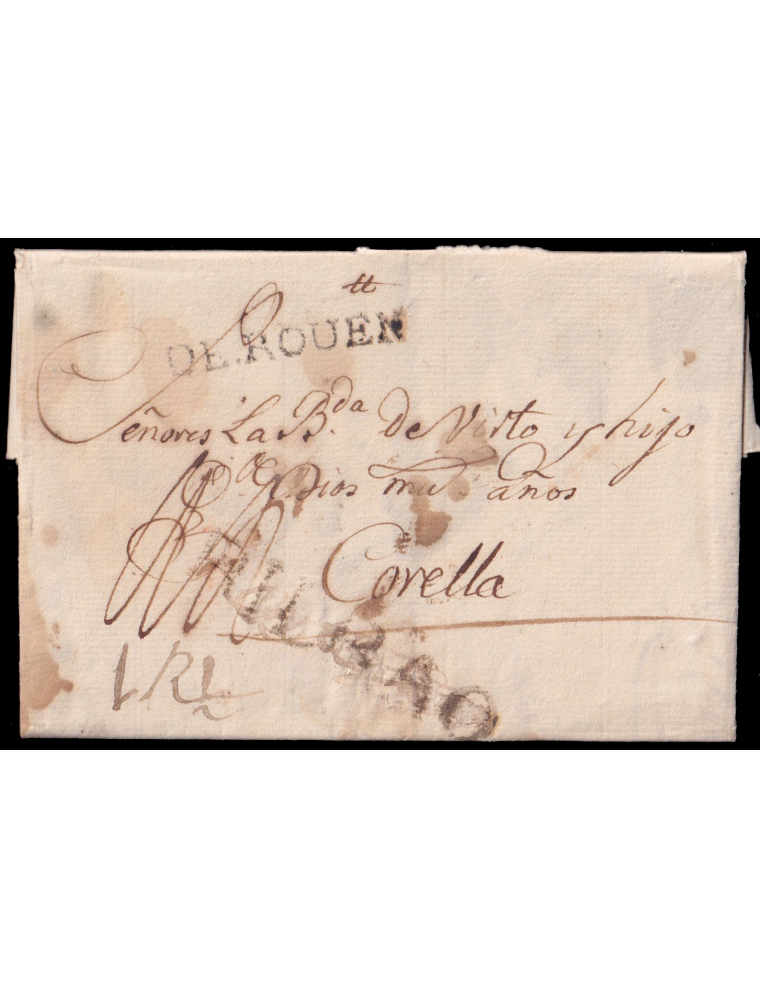 tt
DE.ROUEN
Señores La B.da de Virto y hijo
Dios mu.s años
Corella
BILBAO
1 Rl